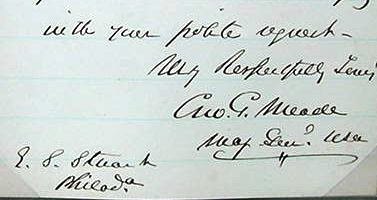 with your polite request –
Very Respectfully Yours
Geo. G. Meade
Maj Genl. USA
E. S. Stuart
Philada